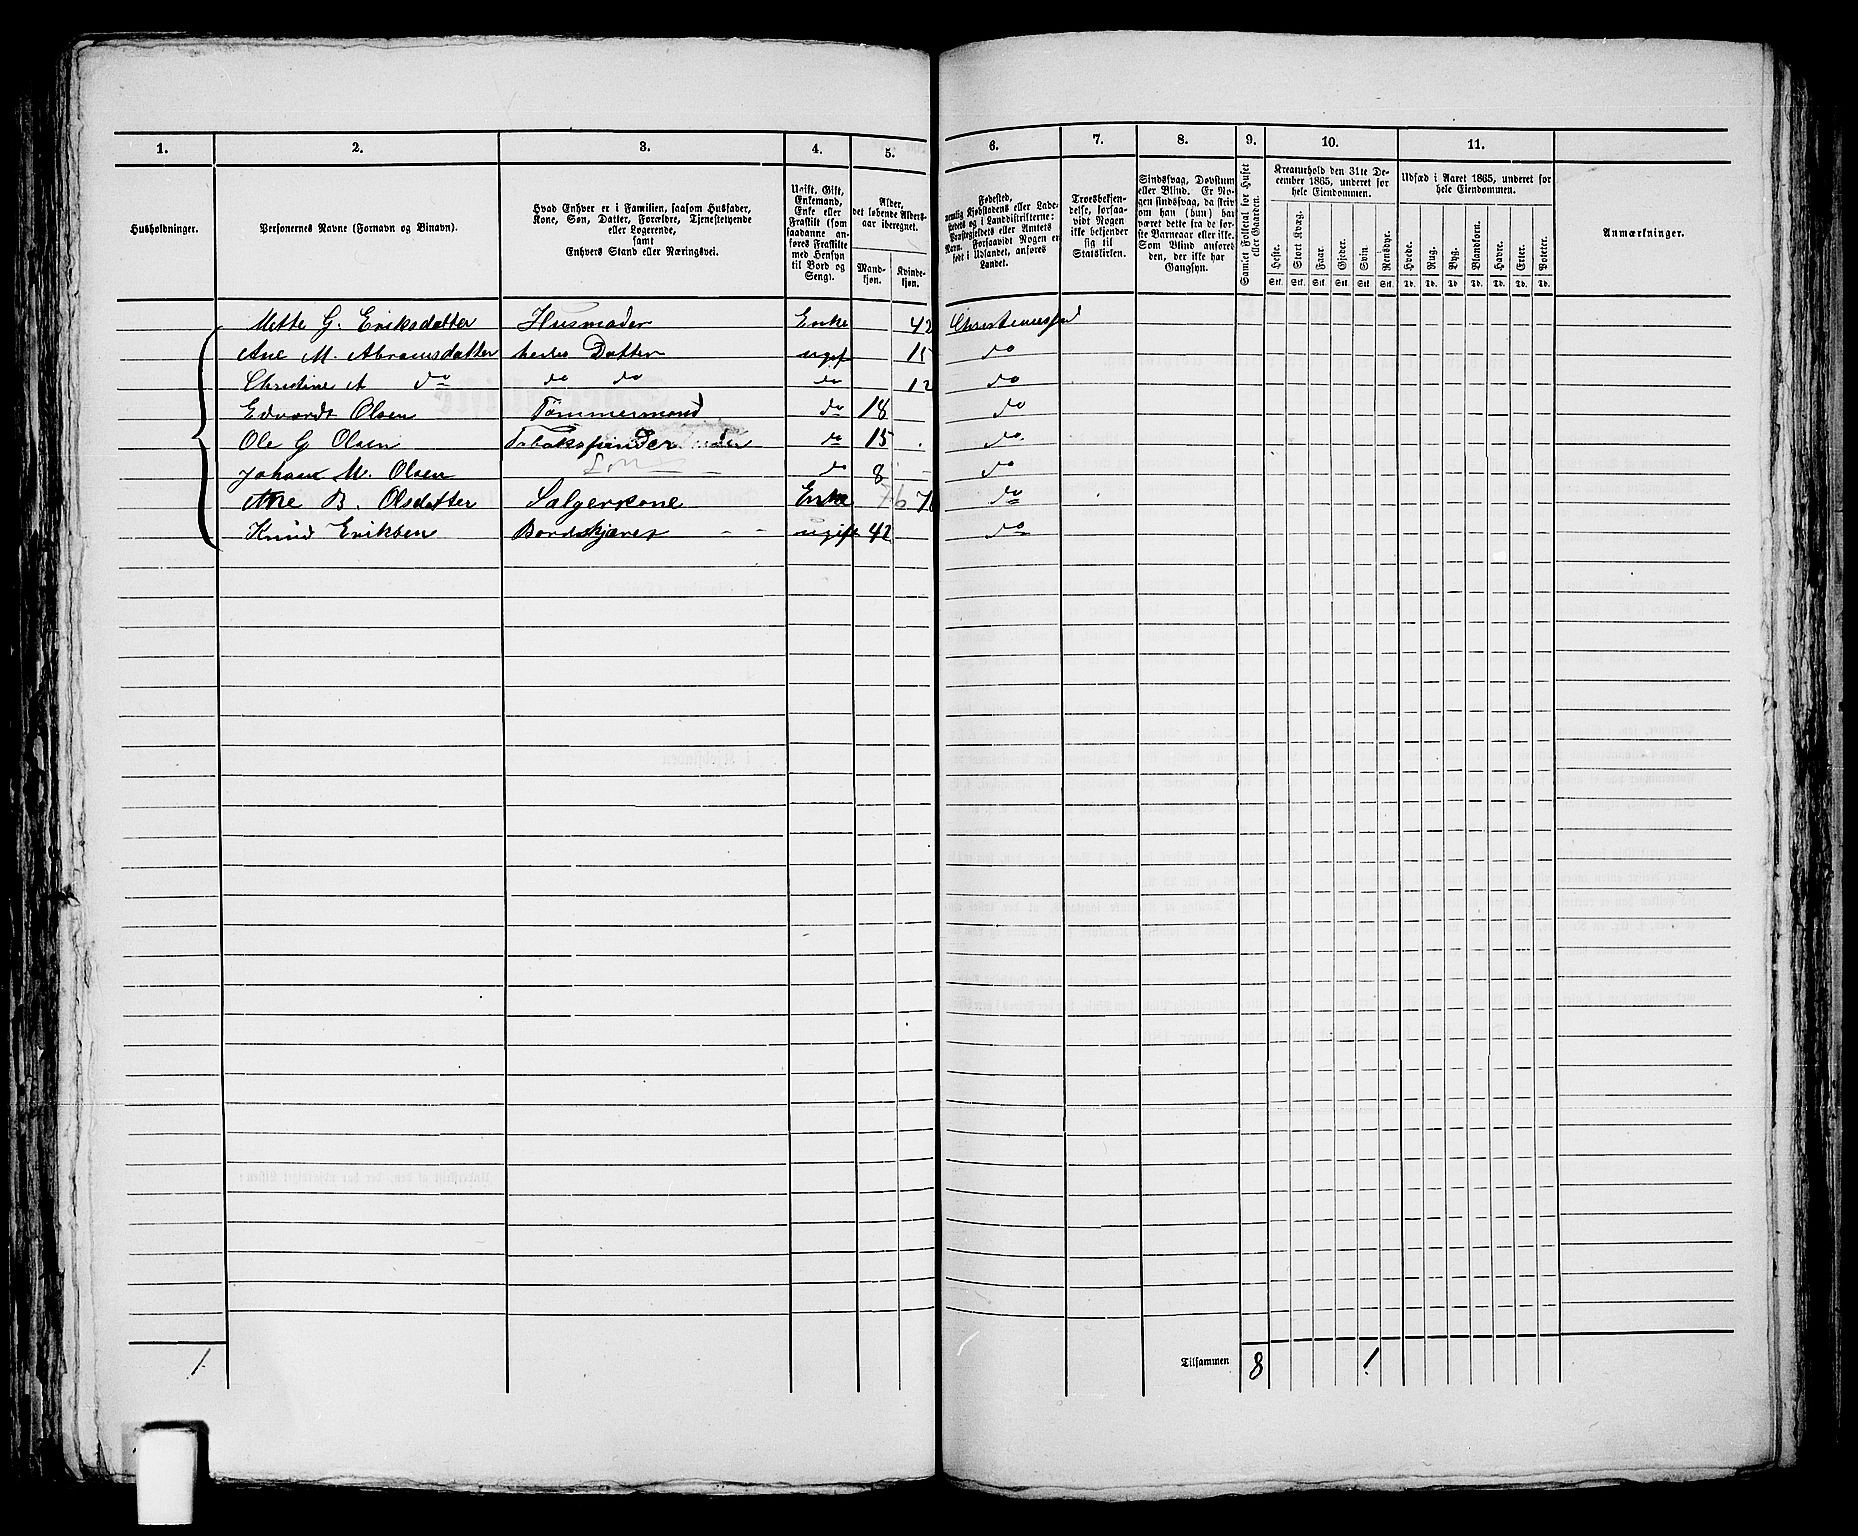 1. 2. 3. 4. 5. 6. 7. 8. 9. 10. 11.
Husholdninger.
Personernes Navne (Fornavn og Binavn).
Hvad Enhver er i Familien, saasom Husfader,
Kone, Søn, Datter, Forældre, Tjenestetyende
eller Logerende,
samt
Enhvers Stand eller Næringsvei.
Ugift, Gift,
Enkemand,
Enke eller
Fraskilt (som
saadanne an-
føres Fraskilte
med Hensyn
til Bord og
Seng).
Alder,
det løbende Alders-
aar iberegnet.
Mand-
kjøn.
Kvinde-
kjøn.
Fødested,
nemlig Kjøbstadens eller Lade-
stedets og i Landdistrikterne:
Præstegjeldets eller Amtets
Navn. Forsaavidt Nogen er
født i Udlandet, anføres
Landet.
Troesbekjen-
delse, forsaa-
vidt Nogen
ikke bekjender
sig til
Statskirken.
Sindssvag, Døvstum
eller Blind. Er No-
gen sindssvag, da skriv
om han (hun) har
været dette fra de før-
ste Barneaar eller ikke.
Som Blind anføres
den, der ikke har
Gangsyn.
Samlet Folketal for Huset
eller Gaarden.
Kreaturhold den 31te De-
cember 1865, underet for
hele Eiendommen.
Heste. Stort Kvæg. Faar. Gjeder. Svin. Rensdyr.
Stk. Stk. Stk. Stk. Stk. Stk.
Udsæd i Aaret 1865, underet for
hele Eiendommen.
Hvede. Rug. Byg. Blandkorn. Havre. Erter. Poteter.
Td. Td. Td. Td. Td. Td. Td.
Anmærkninger.
Mette G. Eriksdatter Husmoder Enke 42 Christianssand
Ane M. Abramsdatter hendes Datter ugift 15 do
Christine A do do do do 12 do
Edvardt Olsen Tømmermand do 18 do
Ole G Olsen Tobaksspinder do 15 do
Johan M. Olsen do 8 do
Ane B. Olsdatter Sælgerkone Enke 76 do
Knud Eriksen Bordskjærer ugift 42 do
1 Tilsammen 8 1